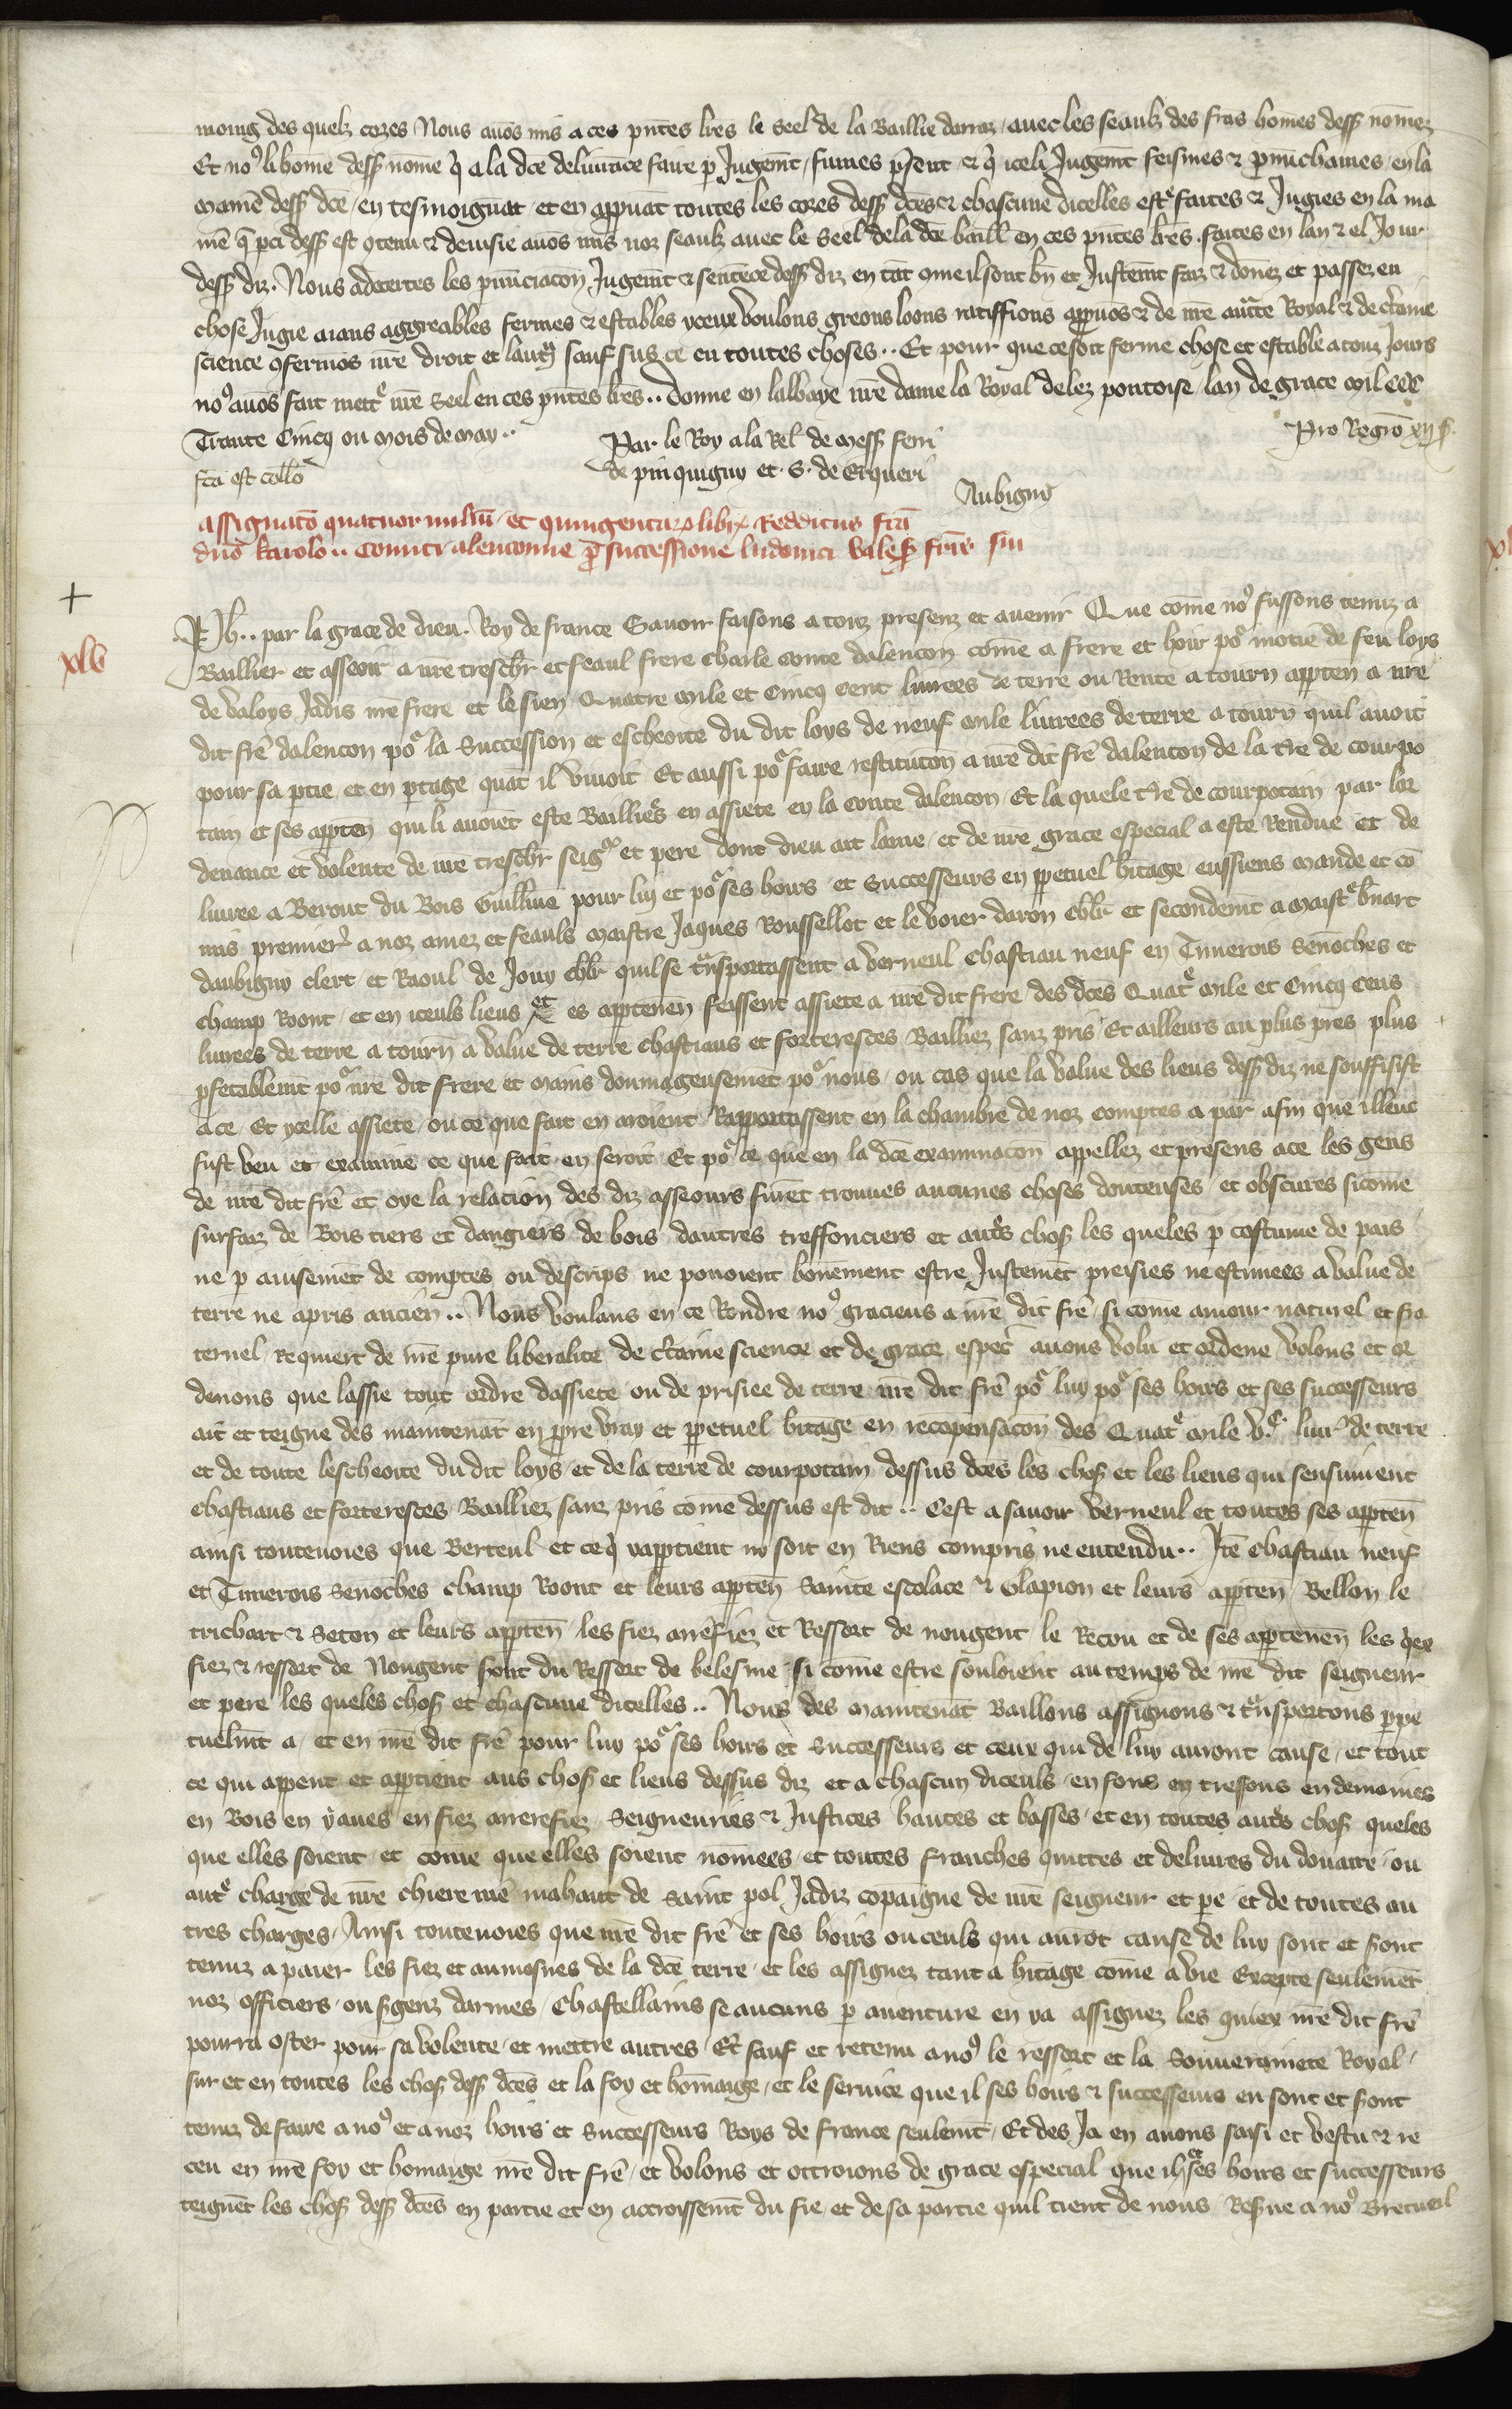 moing des quelz cozes Nous avõs mis a ces pñtes lr̃es le seel de la Baillie darraz / avec les seaulz des frãs homes dess nomez
Et no9 li home dess nome q̃ a la dc̃e delivrãce faire p Jugemt / fumes pr̃sent & q̃ iceli Jugemt feismes & pnũchames / en la
manie dess dc̃e / en tesmoignãt / et en appvãt toutes les cozes dess dc̃es & chascune dicelles estr faites & Jugies en la ma
nie q̃ p ci dess est 9tenu & devisie avõs mis noz seaulz avec le Seel de la dc̃e baill en ces pñtes lr̃es. faites en lan & el Jour
dess diz. Nous adcertes les pnũciacon Jugemt & sentẽce dess diz en tãt 9me il sont bñ et Justemt faiz & dõnez et passez en
chose Jugie aians aggreables fermes & estables yceux voulons greons loons ratiffions appvõs & de nr̃e auctte Royal & de ctaine
science 9fermõs nr̃e droit et lautruy sauf sus ce en toutes choses.. Et pour que ce soit ferme chose et estable a touz Jours
no9 avõs fait mettr nr̃e Seel en ces pñtes lr̃es.. Donne en labbaye nr̃e dame la Royal delez pontoise / lan de grace mil CCC
Trante Cincq ou mois de may..
Par le Roy a la Rel de mess ferri
Pro Regro xij s.
fca est collo
de pinquigny et . S. de Erqueri
Aubigny
Assignatõ quatuor miliũ et quingentarum librarum Redditus fc̃a
dno karolo .. Comiti alenconie p successione ludovici vales fr̃is sui
+
xlv
Ph.. par la grace de dieu. Roy de france Savoir faisons a touz presenz et avenir Que cõme no9 fussons tenuz a
Baillier et asseoir a nr̃e treschr et feaul frere Charle conte dalencon cõme a frere et hoir po motie de feu loys
de valoys Jadis nr̃e frere et le sien Quatre mile et Cincq cent livrees de terre ou Rente a tourn apptẽn a nr̃e
dit frẽ dalencon po la Succession et escheoite du dit loys de neuf mile livrees de terre a tourñ quil avoit
pour sa ptie et en ptage quãt il vivoit Et aussi po faire restitucõn a nr̃e dit frẽ dalencon de la tr̃e de courpo
tain et ses apptẽn qui li avoiẽt este Bailliées en assiete en la conte dalencon / Et la quele tr̃e de courpotain par lor
denance et volente de nr̃e treschr seigr et pere dont dieu ait lame / et de nr̃e grace especial a este Rendue et de
livree a Berout du Bois Guillme pour luy et po ses hoirs et Successeurs en ppetuel hitage / eussiens mande et cõ
mis premier a noz amez et feauls maistre Jaques Roussellot et le voier daron chlr et secondemt a maistr bnart
daubigny clerc et Raoul de Jouy chlr quil se trnsportassent a verneul chastiau neuf en Timerois Senoches et
champ Ront / et en iceuls lieus et es apptenen feissent assiete a nr̃e dit frere des dc̃es Quatr mile et Cincq Cens
livrees de terre a tourñ a value de terre chastiaus et forteresces Bailliez sanz pris / Et ailleurs au plus pres plus
pfetablemt po nr̃e dit frere et mains donmageusemẽt po nous / ou cas que la value des lieus dess diz ne souffisist
a ce / Et ycelle assiete / ou ce que fait en aroient Rapportassent en la chambre de noz comptes a par / afin que illeuc
fust veu et examine ce que fait en seroit Et po ce que en la dc̃e examinacõn appellez et presens a ce les gens
de nr̃e dit frẽ et oye la relacion des diz asseours furẽt trouves aucunes choses doutenses / et obscures sicõme
surfaiz de Bois tiers et dangiers de bois dautres treffonciers et autrs chos les queles p costume de pais
ne p avisemẽt de comptes ou descrips ne povoient bonement estre Justemẽt preisies ne estimees a value de
terre ne apris ancien.. Nous voulans en ce Rendre no9 gracieus a nr̃e dit frẽ / si come amour naturel et fra
ternel / requiert de nr̃e pure liberalite de ctaine science et de grace espec̃ avons volu et ordene / volons et or
denons que lassie tout ordre dassiete ou de prisiee de terre nr̃e dit frẽ po luy po ses hoirs et ses successeurs
ait et teigne des maintenãt en ppre vray et ppetuel hitage en recõpensacõn des Quatr mile v.c. livr de terre
et de toute lescheoite du dit loys et de la terre de courpotain dessus dc̃es les chos et les lieus qui sensuivent
chastiaus et forteresces Bailliez sanz pris cõme dessus est dit .. Cest a savoir verneul et toutes ses apptẽn
ainsi toutevoies que Berteul et ce q̃ yapptient ny soit en Riens compris ne entendu.. Itẽ chastiau neuf
et Timerois Senoches champ Ront et leurs apptẽn Sainte escolace & Glapion et leurs apptẽn / Bellou le
trichart & Seton et leurs apptẽn / les fiez arrefiez et Ressort de nougent le Retrou et de ses apptenen les qex
fiez & ressort de Nougent sont du Ressort de belesme / si cõme estre souloient au temps de nr̃e dit seigneur
et pere les queles chos et chascune dicelles .. Nous des maintenãt Baillons assignons & trnsportons ppe
tuelmt a / et en nr̃e dit frẽ pour luy po ses hoirs et Successeurs et ceux qui de luy auront cause / et tout
ce qui appent et apptient aus chos et lieus dessus diz et a chascun diceuls / en fons en tresfons en demaines
en Bois en yaues en fiez arrerefiez Seigneuries & Justices hautes et basses / et en toutes autrs chos queles
que elles soient / et cõme que elles soient nõmees / et toutes franches quittes et delivres du douaire / ou
autr charge de nr̃e chiere mẽ mahaut de Saint pol Jadiz cõpaigne de nr̃e seigneur et pe / et de toutes au
tres charges / Ainsi toutevoies que nr̃e dit frẽ et ses hoirs ou ceuls qui aurõt cause de luy sont et sont
tenuz a paier les fiez et aumosnes de la dc̃e terre / et les assignez tant a hitage cõme a vie Excepte seulemẽt
noz officiers / ou sgenz darmes / Chastellains se aucuns p aventure en ya assignez les quiex nr̃e dit frẽ
pourra oster pour sa volente / et mettre autres / Et sauf et retenu a no9 le ressort et la Souverainete Royal /
sur et en toutes les chos dess dc̃es et la foy et homaige / et le service que il ses hoirs & successeurs en sont et sont
tenuz de faire a no9 et a noz hoirs et Successeurs Roys de france seulemt / Et des Ja en avons saisi et vestu & re
ceu en nr̃e foy et homaige nr̃e dit frẽ / et volons et ottroions de grace especial que il & ses hoirs et successeurs
teignẽt les chos dess dc̃es en partie et en accroissemt du fie / et de sa partie quil tient de nous / Resvue a no9 Bretueil